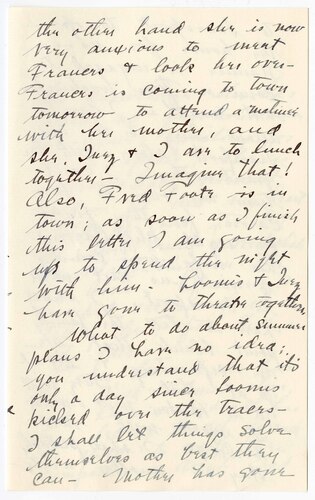 the other hand she is now
very anxious to meet
Frances & look her over-
Frances is coming to town
tomorrow to attend a matinee
with her mother, and
she, Inez & I are to lunch
together- Imagine that!
Also, Fred Foote is in
town; as soon as I finish
this letter I am going
up to spend the night
with him- Loomis & Inez
have gone to theatre together.
What to do about summer
plans I have no idea;
you understand that it's
only a day since Loomis
kicked over the traces-
I shall let things solve
themselves as best they
can- Mother has gone